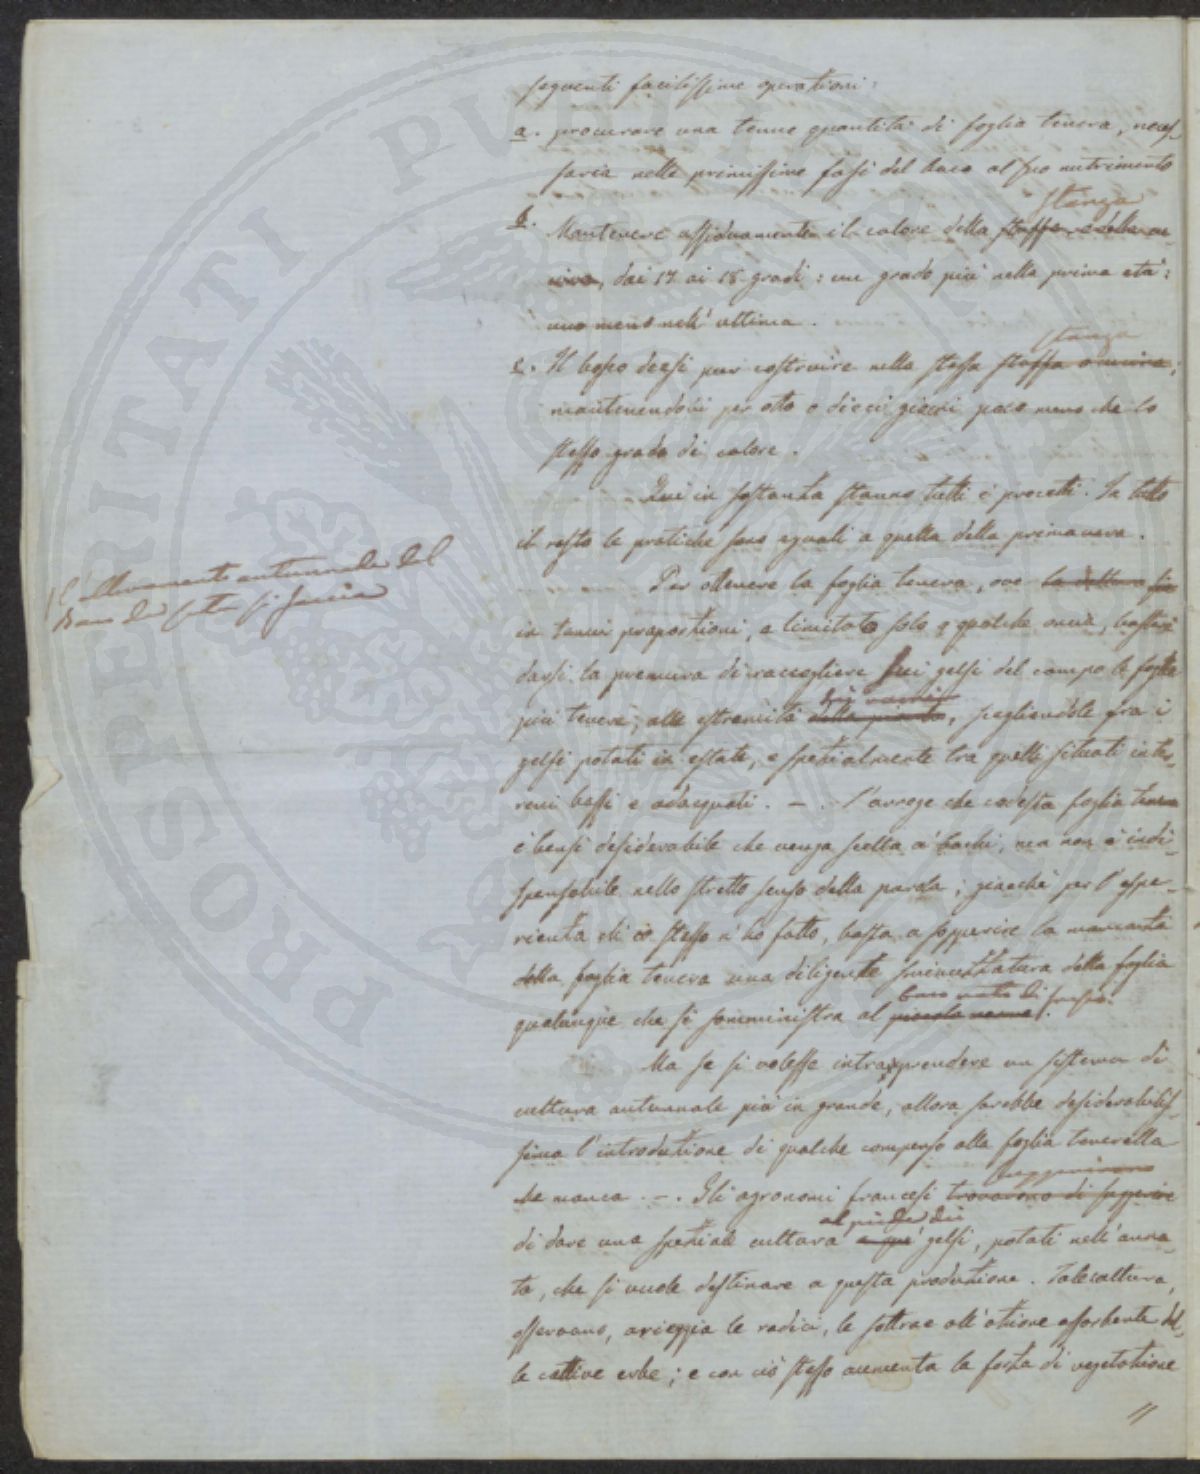 seguenti facilissime operazioni:
a. procurare una tenue quantità di foglia tenera, neces-
saria nelle primissime fasi del baco al suo nutrimento
stanza
b. Mantenere assiduamente il calore della stuffa o della cu-
cina, dai 17 ai 18 gradi: un grado più nella prima età:
uno meno nell'ultima.
stanza
c. Il bosco deesi pur costruire nella stessa stuffa o cucina;
mantenendovi per otto o dieci giorni poco meno che lo
stesso grado di calore.
Qui in sostanza stanno tutti i precetti. In tutto
il resto le pratiche sono eguali a quella della primavera.
L'allevamento autunnale del
Baco da seta si faccia
Per ottenere la foglia tenera, ove la coltura sia
in tenui proporzioni, e limitata solo a qualche oncia, basterà
darsi la premura di raccogliere sui gelsi del campo le foglie
dei rami
più tenere, alle estremità della pianta, scegliendole fra i
gelsi potati in estate, e spezialmente tra quelli situati in ter-
reni bassi e adacquati. — . S'arroge che codesta foglia tenera
è bensì desiderabile che venga scelta a' bachi, ma non è indi-
spensabile nello stretto senso della parola; giacchè per l'espe-
rienza che io stesso n'ho fatto, basta a sopperire la mancanza
della foglia tenera una diligente sminuzzatura della foglia
baco nato di fresco.
qualunque che si somministra al
Ma se si volesse intraprendere un sistema di
cultura autunnale più in grande, allora sarebbe desiderabilis-
simo l'introduzione di qualche compenso alla foglia tenerella
suggerirono
che manca. — . Gli agronomi francesi trovarono di sopperire
al piede dei
di dare una speziale cultura a que' gelsi, potati nell'anna-
ta, che si vuole destinare a questa produzione. Tale coltura,
osservano, arieggia le radici, le sottrae all'azione assorbente del-
le cattive erbe; e con ciò stesso aumenta la forza di vegetazione